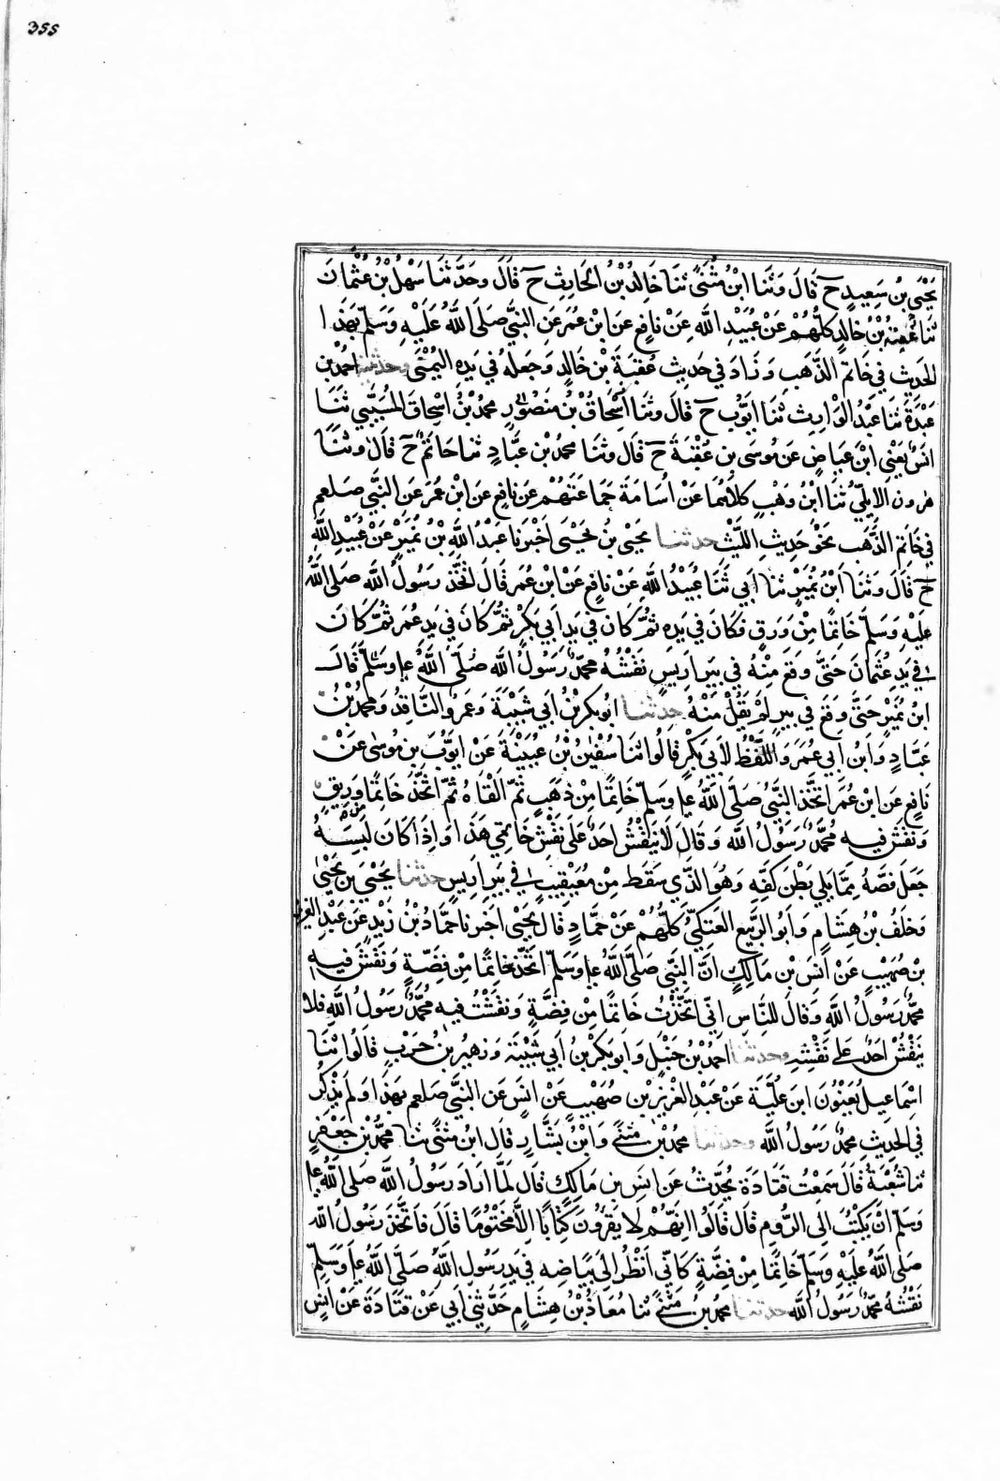 355
يَحْيَى بنُ سَعِيدٍ ح قَالَ وَثَنَا ابْنُ مُثَنًّى ثنَا خَالِدُ بْنُ الحَارِثِ ح قَالَ وحَدَّثَنَا سَهْلُ بْنُ عُثْمانَ
ثنَا عُقْبَةُ بْنُ خَالِدٍ كلُّهُمْ عَنْ عُبَيْدِ اللَّهِ عَنْ نَافِعٍ عنِ ابْنِ عُمَرَ عَنِ النبيِّ صَلَى اللَّهُ عَلَيْهِ وَسَلَّم بِهَذَا
الحَدِيثِ في خَاتَمِ الذَّهَبِ وَزَادَ في حَدِيثِ عُقْبَةَ بْنِ خَالِدٍ وَجَعَلَهُ في يَدِهِ اليُمْنَى وحدثنيه احمدُ بْنُ
عَبْدَةَ ثنَا عَبْدُ الوَارِثِ ثنَا ايّوبُ ح قالَ وثَنَا إسْحَاقُ بْنُ مَنْصُورٍ محمدُ بْنُ اسْحَاقَ المُسَيَّبي ثَنَا
انَسٌ يَعْنِي ابْنَ عِيَاضٍ عَنْ مُوسَى بنِ عُقْبَةَ ح قَالَ وثنَا محمدُ بْنُ عَبَّادٍ ثنا حَاتَمٌ ح قَالَ وثنَا
هٰرون الايليُّ ثنَا ابْنُ وَهْبٍ كلاهُمَا عَنْ اُسَامَةَ جَمَاعَتُهُمْ عَنْ نَافِعٍ عَنِ ابْنِ عُمَرَ عَنِ النَّبي صَلعم
في خَاتَمِ الذَّهَبِ نَحْوَ حَدِيثِ اللَّيْثِ حدثنا يَحْيَى بنُ يَحْيَى اَخْبَرَنا عَبْدُ اللَّهِ بْنُ نُمَيْرٍ عَنْ عُبَيْدِ اللَّهِ
ح قَالَ وَثنَا ابْنُ نُمَيْرٍ ثنا اَبِي ثَنَا عُبَيْدُ اللَّهِ عَنْ نَافِعٍ عَنْ ابْنِ عُمَرَ قَالَ اتَّخَذَ رَسُولُ اللَّه صَلَى اللَّهُ
عَلَيْهِ وَسَلَّم خَاتَمًا مِنْ وَرِقٍ فكَانَ في يَدِهِ ثُمَّ كَانَ في يَدِ اَبِي بَكْرٍ ثُمَّ كَانَ في يَدِ عُمَرَ ثُمَّ كَانَ
في يَدِ عُثمَانَ حَتَّى وَقَعَ مِنْهُ في بِيرِ اَرِيسٍ نَقْشُهُ محمّدٌ رَسُولُ اللَّه صَلَّى اللَّهُ علِ وسَلَّم قَالَ
ابنُ نُمَيْرٍ حَتَّى وَقَعَ في بيرٍ لَمْ يَقُلْ مِنْهُ حدثنا ابُو بكْرِ بْنُ ابي شَيْبَةَ وَعَمْروٌ النَّاقِدُ ومحمدُ بْنُ
عَبَّادٍ وَابن اَبِي عُمَرَ وَاللَّفْظُ لأَبِي بَكْرٍ قالُوا ثنَا سُفْيٰنُ بْنُ عُيَيْنَةَ عَنْ ايّوُبَ بنِ مُوسَى عَنْ
نَافِعٍ عَنِ ابْنِ عُمَرَ اتَّخَذَ النَّبِيُّ صَلَّى اللَّهُ علِ وسَلَّم خَاتِمًا مِنْ ذَهَبٍ ثُمَّ اَلْقَاهُ ثُمّ اتَّخَذَ خَاتِمًا من وَرِقٍ
وَنَقَشَ فيهِ مُحمَّدٌ رَسُولُ اللَّه وَقَالَ لَا يَنْقُشْ احدٌ عَلَى نَقْشِ خَاتمي هَذَا وَاِذَا كَانَ لَبِسَهُ
جَعَلَ فصَّهُ مِمَّا يَلِي بَطْنَ كَفِّهِ وَهُوَ الَّذِي سَقَطَ مِنْ مُعَيْقِيبٍ في بِيرِ اَرِيسٍ حدثنا يَحْيَى بن يَحْيَى
وَخَلَفُ بْنُ هِشَامٍ وَاَبُو الرَّبِيعِ العَتَكِيُّ كلُّهُمْ عَنْ حَمَّادٍ قَالَ يَحْيَى اخبرنا حمَّادُ بْنُ زَيْدٍ عَنْ عَبْدِ العزيز
بْنِ صُهَيْبٍ عَنْ انَسِ بْنِ مَالِكٍ اَنَّ النَّبِيَّ صَلَّى اللَّهُ علِ وسَلَّم اتَّخَذَ خَاتِمًا مِنْ فِضَّةٍ وَنَقَشَ فيهِ
مُحمَّدٌ رَسُولُ اللَّهِ وَقَالَ للنَّاسِ انّي اتَّخَذْتُ خَاتِمًا مِنْ فِضَّةٍ وَنَقَشْتُ فيه مُحمَّدٌ رَسُولُ اللَّهِ فلا
يَنْقُشْ احَدٌ عَلى نَقْشِهِ وحدثنا احمدُ بْنُ حَنْبَلٍ وَابُو بَكْرِ بْنُ ابي شَيْبَةَ وَزُهَيرُ بْنُ حَرْبٍ قَالُوا ثنَا
اسْمَاعِيلُ يَعْنُونَ ابنَ عُلَيَّةَ عَنْ عَبْدِ العَزِيزِ بْنِ صُهَيْبٍ عَنْ انَسٍ عَنِ النبيَّ صَلعم بهَذَا وَلَم يَذْكُر
في الحَدِيثِ محمدٌ رَسُولُ اللَّه وحدثنا محمدُ بْنُ مثنًّى وَابْنُ بَشَّارٍ قَالَ ابنُ مثنَّى ثنا محمّدُ بْنُ جَعْفَرٍ
ثنَا شُعْبَةُ قَالَ سَمِعْتُ قَتَادَةَ يُحَدِّثُ عَنْ انَسِ بنِ مَالِكٍ قَالَ لَمَّا ارَادَ رَسُولُ اللَّه صَلى اللَّهُ علِ
وَسَلَّم انْ يَكْتُبَ الَى الرُّومِ قَالَ قَالُوا اِنَّهُمْ لَا يَقرَؤُونَ كِتَابًا اِلَّا مَخْتُومًا قَالَ فاَتَّخَذَ رَسُولُ اللَّه
صَلَى اللَّهُ عَلَيْهِ وَسَلَّم خَاتِمًا مِنْ فِضَّةٍ كَاَنِّي اَنْظُرُ اِلَى بَيَاضِهِ في يَدِ رَسُولِ اللَّهِ صَلَّى اللَّهُ علِ وسَلَّم
نَقْشُهُ محمّدٌ رَسُولُ اللَّه حدثنا محمدُ بنُ مثنَّى ثنا مُعَاذُ بْنُ هِشَامٍ حَدَّثَنِي اَبِي عَنْ قتَادَةَ عَنْ انَسٍ